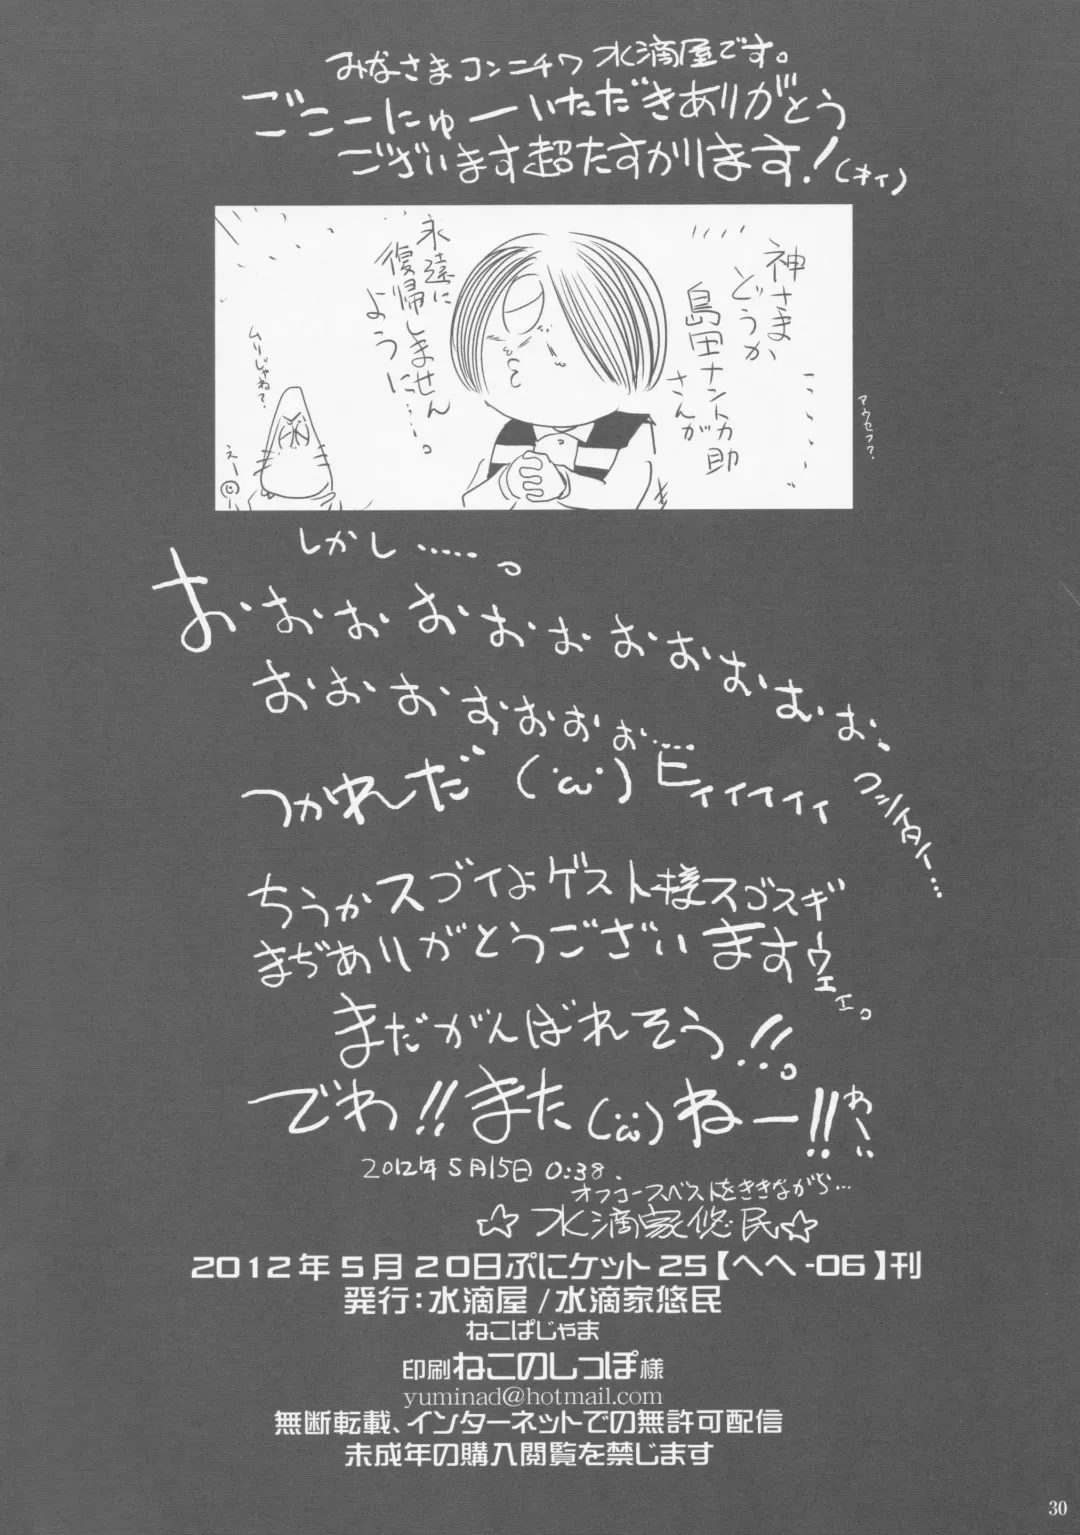 みなさまコンニチワ 水滴屋です。
ごこーにゅーいただきありがとう
ございます超たすかります!(オイ)
神さま
どうか
島田ナントカ助
さんが
永遠に
復帰しません
ように…。
ムリじゃね?
えー
アウセフ?
しかし……。
お、おぉおぉおおおおおお、
おおおおおおぉ……
つかれだ(´ω`)ビィィィィィ
ちうかスゴイよゲスト様スゴスギ
まぢありがとうございますーウェェ。
まだがんばれそう!!。
でわ!!また(´ω`)ねー!!
わーい
2012年5月15日 0:38.
オフコースベストをききながら…
☆水滴家悠民☆
2012年5月20日ぷにケット25【へへ-06】刊
発行:水滴屋/水滴家悠民
ねこぱじゃま
印刷ねこのしっぽ様
yuminad@hotmail.com
無断転載、インターネットでの無許可配信
未成年の購入閲覧を禁じます
30